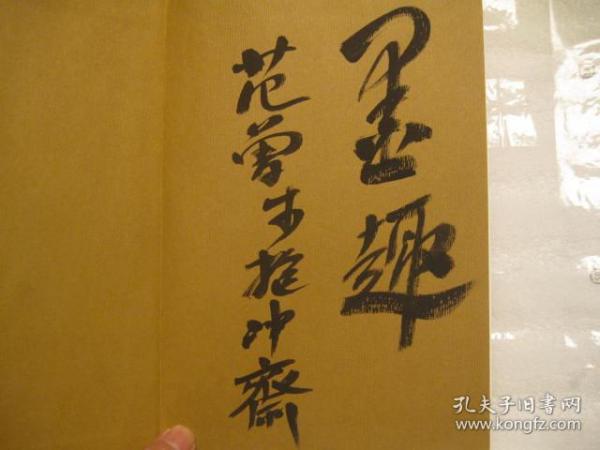 墨趣
范曾于抱冲斋
孔夫子旧书网
www.kongfz.com